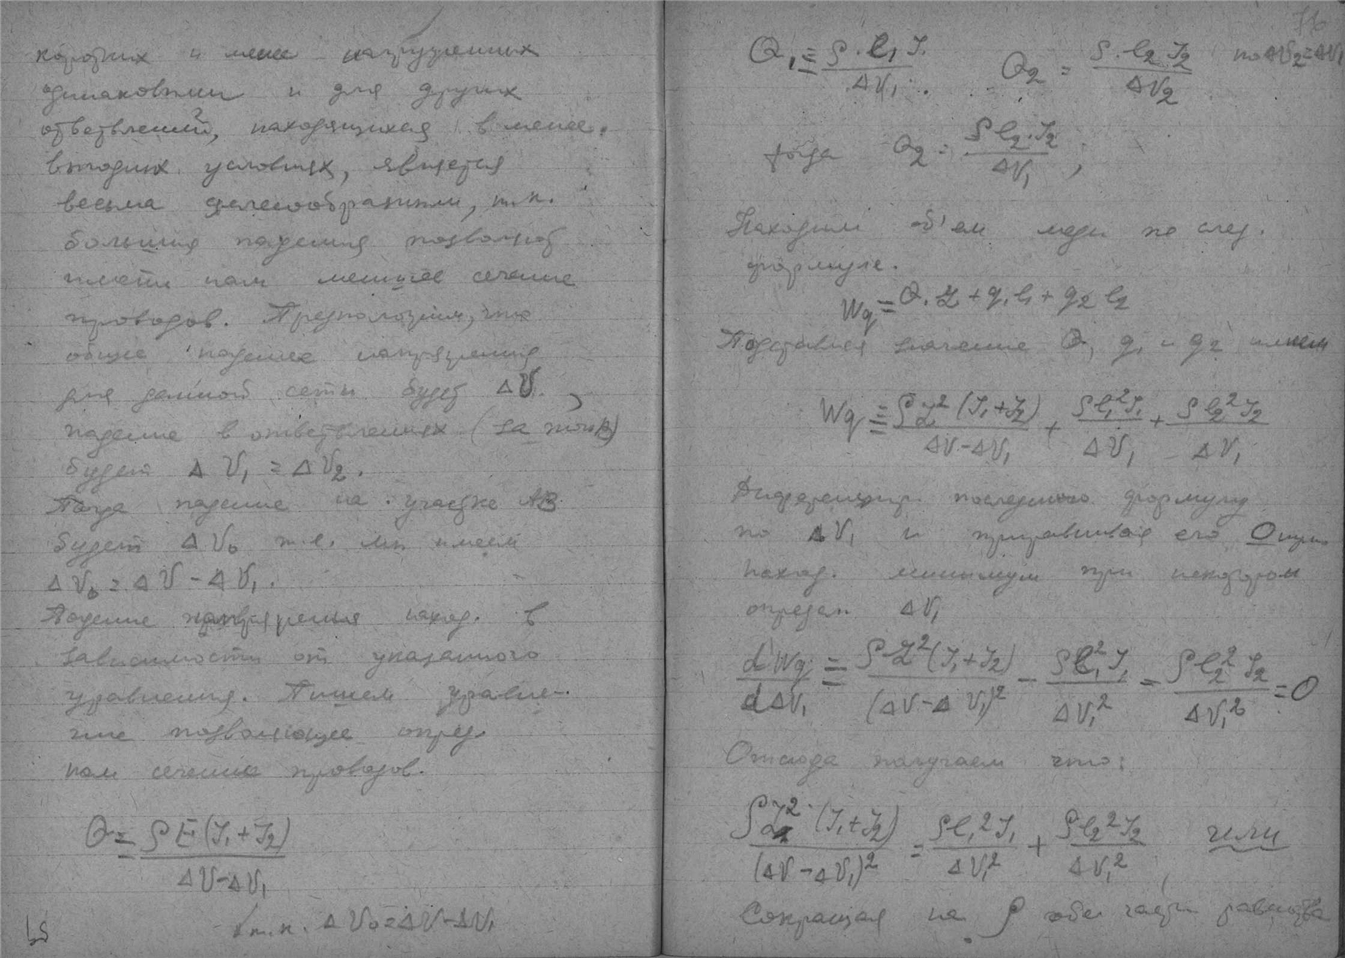 коротких и менее нагруженных
одинаковыми и для других
ответвлений, находящихся в менее
выгодных условиях, является
весьма целесообразным, т.к.
большие падения позволяют
иметь нам меньшее сечение
проводов. Предположим, что
общее падение напряжения
для данной сети будет ΔV.
падение в ответвлениях (за точк. В)
будет ΔV₁ = ΔV₂.
Тогда падение на участке АВ
будет ΔV₀ т.е. мы имеем
ΔV₀ = ΔV - ΔV₁.
Падение напряжения наход. в
зависимости от указанного
уравнения. Пишем уравне-
ние позволяющее опред.
нам сечение проводов.
Q = ρ Ł (J₁ + J₂) / (ΔV - ΔV₁)
т.к. ΔV₀ = ΔV - ΔV₁
Q₁ = ρ · l₁ J₁ / ΔV₁. Q₂ = ρ · l₂ J₂ / ΔV₂ но ΔV₂ = ΔV₁
тогда Q₂ = ρ l₂ · J₂ / ΔV₁;
Находим об'ем меди по след.
формуле.
Wq = Q · L + q₁ l₁ + q₂ l₂
Подставляя значение Q, q₁ и q₂ имеем
Wq = ρ L² (J₁ + J₂) / (ΔV - ΔV₁) + ρ l₁² J₁ / ΔV₁ + ρ l₂² J₂ / ΔV₁
Диференцир. последнюю формулу
по ΔV₁ и приравнивая его 0
наход. минимум при некотором
определ. ΔV₁
dWq / dΔV₁ = ρ L² (J₁ + J₂) / (ΔV - ΔV₁)² - ρ l₁² J₁ / ΔV₁² - ρ l₂² J₂ / ΔV₁² = 0
Отсюда получаем что:
ρ L² · (J₁ + J₂) / (ΔV - ΔV₁)² = ρ l₁² J₁ / ΔV₁² + ρ l₂² J₂ / ΔV₁², или
Сокращая на ρ обе части равенства